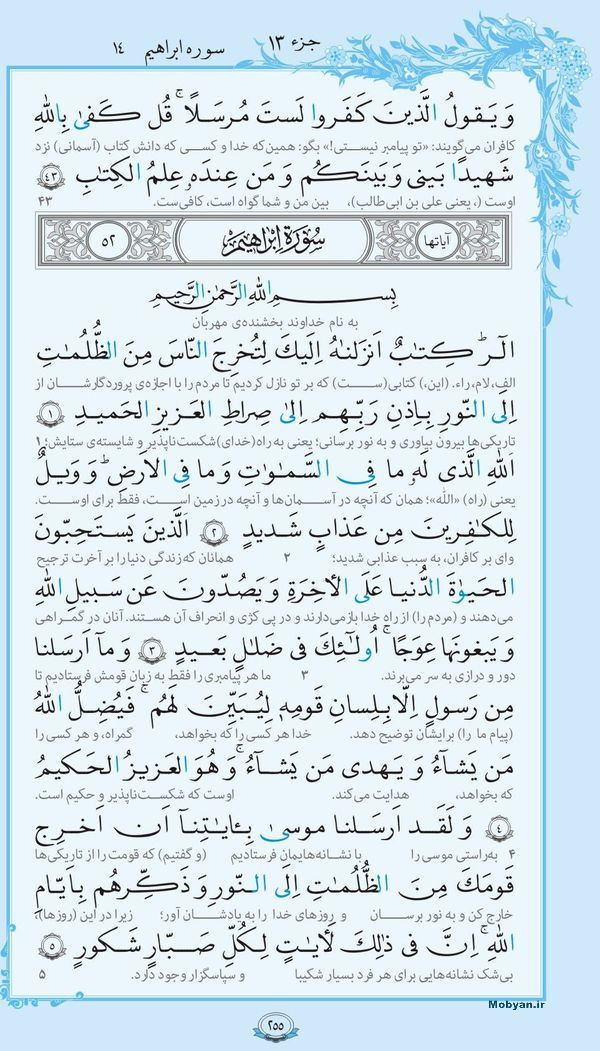 جزء ۱۳ سوره ابراهیم ۱۴
وَ یَقولُ الَّذینَ کَفَروا لَستَ مُرسَلًا ۚ قُل کَفیٰ بِاللّٰهِ
کافران می‌گویند: «تو پیامبر نیستی!» بگو: همین‌که خدا و کسی که دانش کتاب (آسمانی) نزد
شَهیدًا بَینی وَ بَینَکُم وَ مَن عِندَهٗ عِلمُ الکِتٰبِ ﴿٤٣﴾
اوست (، یعنی علی بن ابی‌طالب)، بین من و شما گواه است، کافی‌ست. ۴۳
آیاتها سُورَةُ اِبْرٰاهِیم ۵۲
بِسمِ اللّٰهِ الرَّحمٰنِ الرَّحیمِ
به نام خداوند بخشنده‌ی مهربان
الٓر ۚ کِتٰبٌ اَنزَلنٰهُ اِلَیكَ لِتُخرِجَ النّاسَ مِنَ الظُّلُمٰتِ
الف، لام، راء. (این،) کتابی(ست) که بر تو نازل کردیم تا مردم را با اجازه‌ی پروردگارشان از
اِلَی النّورِ بِاِذنِ رَبِّهِم اِلیٰ صِراطِ العَزیزِ الحَمیدِ ﴿١﴾
تاریکی‌ها بیرون بیاوری و به نور برسانی؛ یعنی به راه (خدای) شکست‌ناپذیر و شایسته‌ی ستایش؛ ۱
اللّٰهِ الَّذی لَهٗ ما فِی السَّمٰوٰتِ وَ ما فِی الاَرضِ ۗ وَ وَیلٌ
یعنی (راه) «الله»؛ همان که آنچه در آسمان‌ها و آنچه در زمین است، فقط برای اوست.
لِلکٰفِرینَ مِن عَذابٍ شَدیدٍ ﴿٢﴾ اَلَّذینَ یَستَحِبّونَ
وای بر کافران، به سبب عذابی شدید؛ ۲ همانان که زندگی دنیا را بر آخرت ترجیح
الحَیوٰةَ الدُّنیا عَلَی الاٰخِرَةِ وَ یَصُدّونَ عَن سَبیلِ اللّٰهِ
می‌دهند و (مردم را) از راه خدا بازمی‌دارند و در پی کژی و انحراف آن هستند. آنان در گمراهی
وَ یَبغونَها عِوَجًا ۚ اُولٰئِكَ فی ضَلٰلٍ بَعیدٍ ﴿٣﴾ وَ مآ اَرسَلنا
دور و درازی به سر می‌برند. ۳ ما هر پیامبری را فقط به زبان قومش فرستادیم تا
مِن رَسولٍ اِلّا بِلِسانِ قَومِهٖ لِیُبَیِّنَ لَهُم ۖ فَیُضِلُّ اللّٰهُ
(پیام ما را) برایشان توضیح دهد. خدا هر کسی را که بخواهد، گمراه، و هر کسی را
مَن یَشآءُ وَ یَهدی مَن یَشآءُ ۚ وَ هُوَ العَزیزُ الحَکیمُ
که بخواهد، هدایت می‌کند. اوست که شکست‌ناپذیر و حکیم است.
﴿٤﴾ وَ لَقَد اَرسَلنا موسیٰ بِـٔایٰتِنآ اَن اَخرِج
۴ به‌راستی موسی را با نشانه‌هایمان فرستادیم (و گفتیم) که قومت را از تاریکی‌ها
قَومَكَ مِنَ الظُّلُمٰتِ اِلَی النّورِ وَ ذَکِّرهُم بِاَیّامِ
خارج کن و به نور برسان و روزهای خدا را به یادشان آور؛ زیرا در این (روزها)،
اللّٰهِ ۚ اِنَّ فی ذٰلِكَ لَاٰیٰتٍ لِکُلِّ صَبّارٍ شَکورٍ ﴿٥﴾
بی‌شک نشانه‌هایی برای هر فرد بسیار شکیبا و سپاسگزار وجود دارد. ۵
Mobyan.ir
۲۵۵